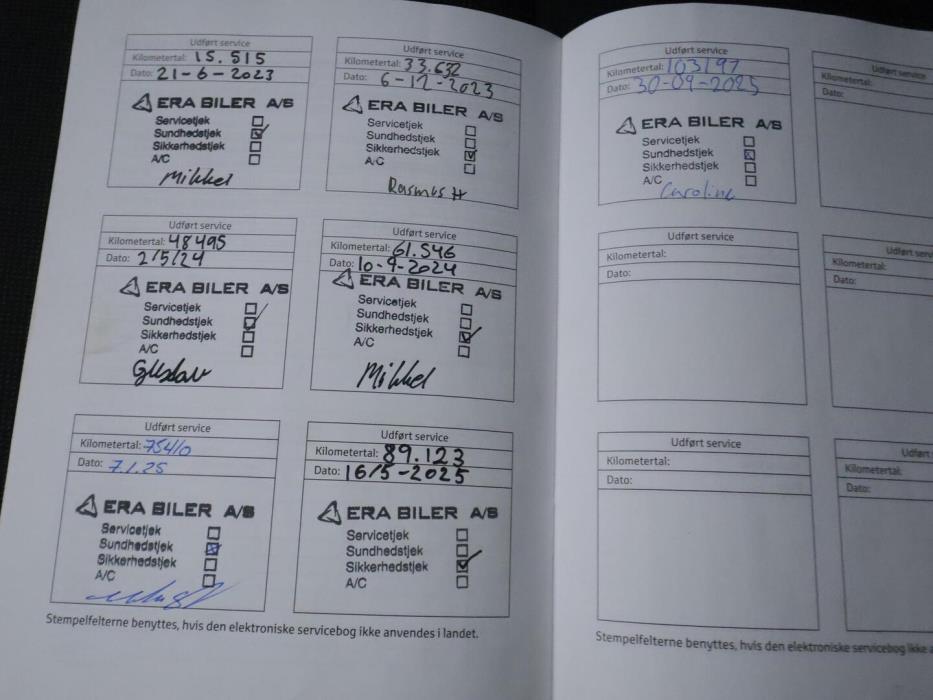 Udført service
Kilometertal: 15.515
Dato: 21-6-2023
ERA BILER A/S
Servicetjek
Sundhedstjek
Sikkerhedstjek
A/C
Mikkel
Udført service
Kilometertal: 33.632
Dato: 6-12-2023
ERA BILER A/S
Servicetjek
Sundhedstjek
Sikkerhedstjek
A/C
Rasmus H
Udført service
Kilometertal: 48495
Dato: 2/5/24
ERA BILER A/S
Servicetjek
Sundhedstjek
Sikkerhedstjek
A/C
Gustav
Udført service
Kilometertal: 61.546
Dato: 10-9-2024
ERA BILER A/S
Servicetjek
Sundhedstjek
Sikkerhedstjek
A/C
Mikkel
Udført service
Kilometertal: 75410
Dato: 7.1.25
ERA BILER A/S
Servicetjek
Sundhedstjek
Sikkerhedstjek
A/C
Udført service
Kilometertal: 89.123
Dato: 16/5-2025
ERA BILER A/S
Servicetjek
Sundhedstjek
Sikkerhedstjek
A/C
Stempelfelterne benyttes, hvis den elektroniske servicebog ikke anvendes i landet.
Udført service
Kilometertal: 103197
Dato: 30-09-2025
ERA BILER A/S
Servicetjek
Sundhedstjek
Sikkerhedstjek
A/C
Caroline
Udført service
Kilometertal:
Dato:
Udført service
Kilometertal:
Dato:
Udført service
Kilometertal:
Dato:
Udført serv
Kilometertal:
Dato:
Udført
Kilometertal:
Dato:
Stempelfelterne benyttes, hvis den elektroniske servicebog ikke a